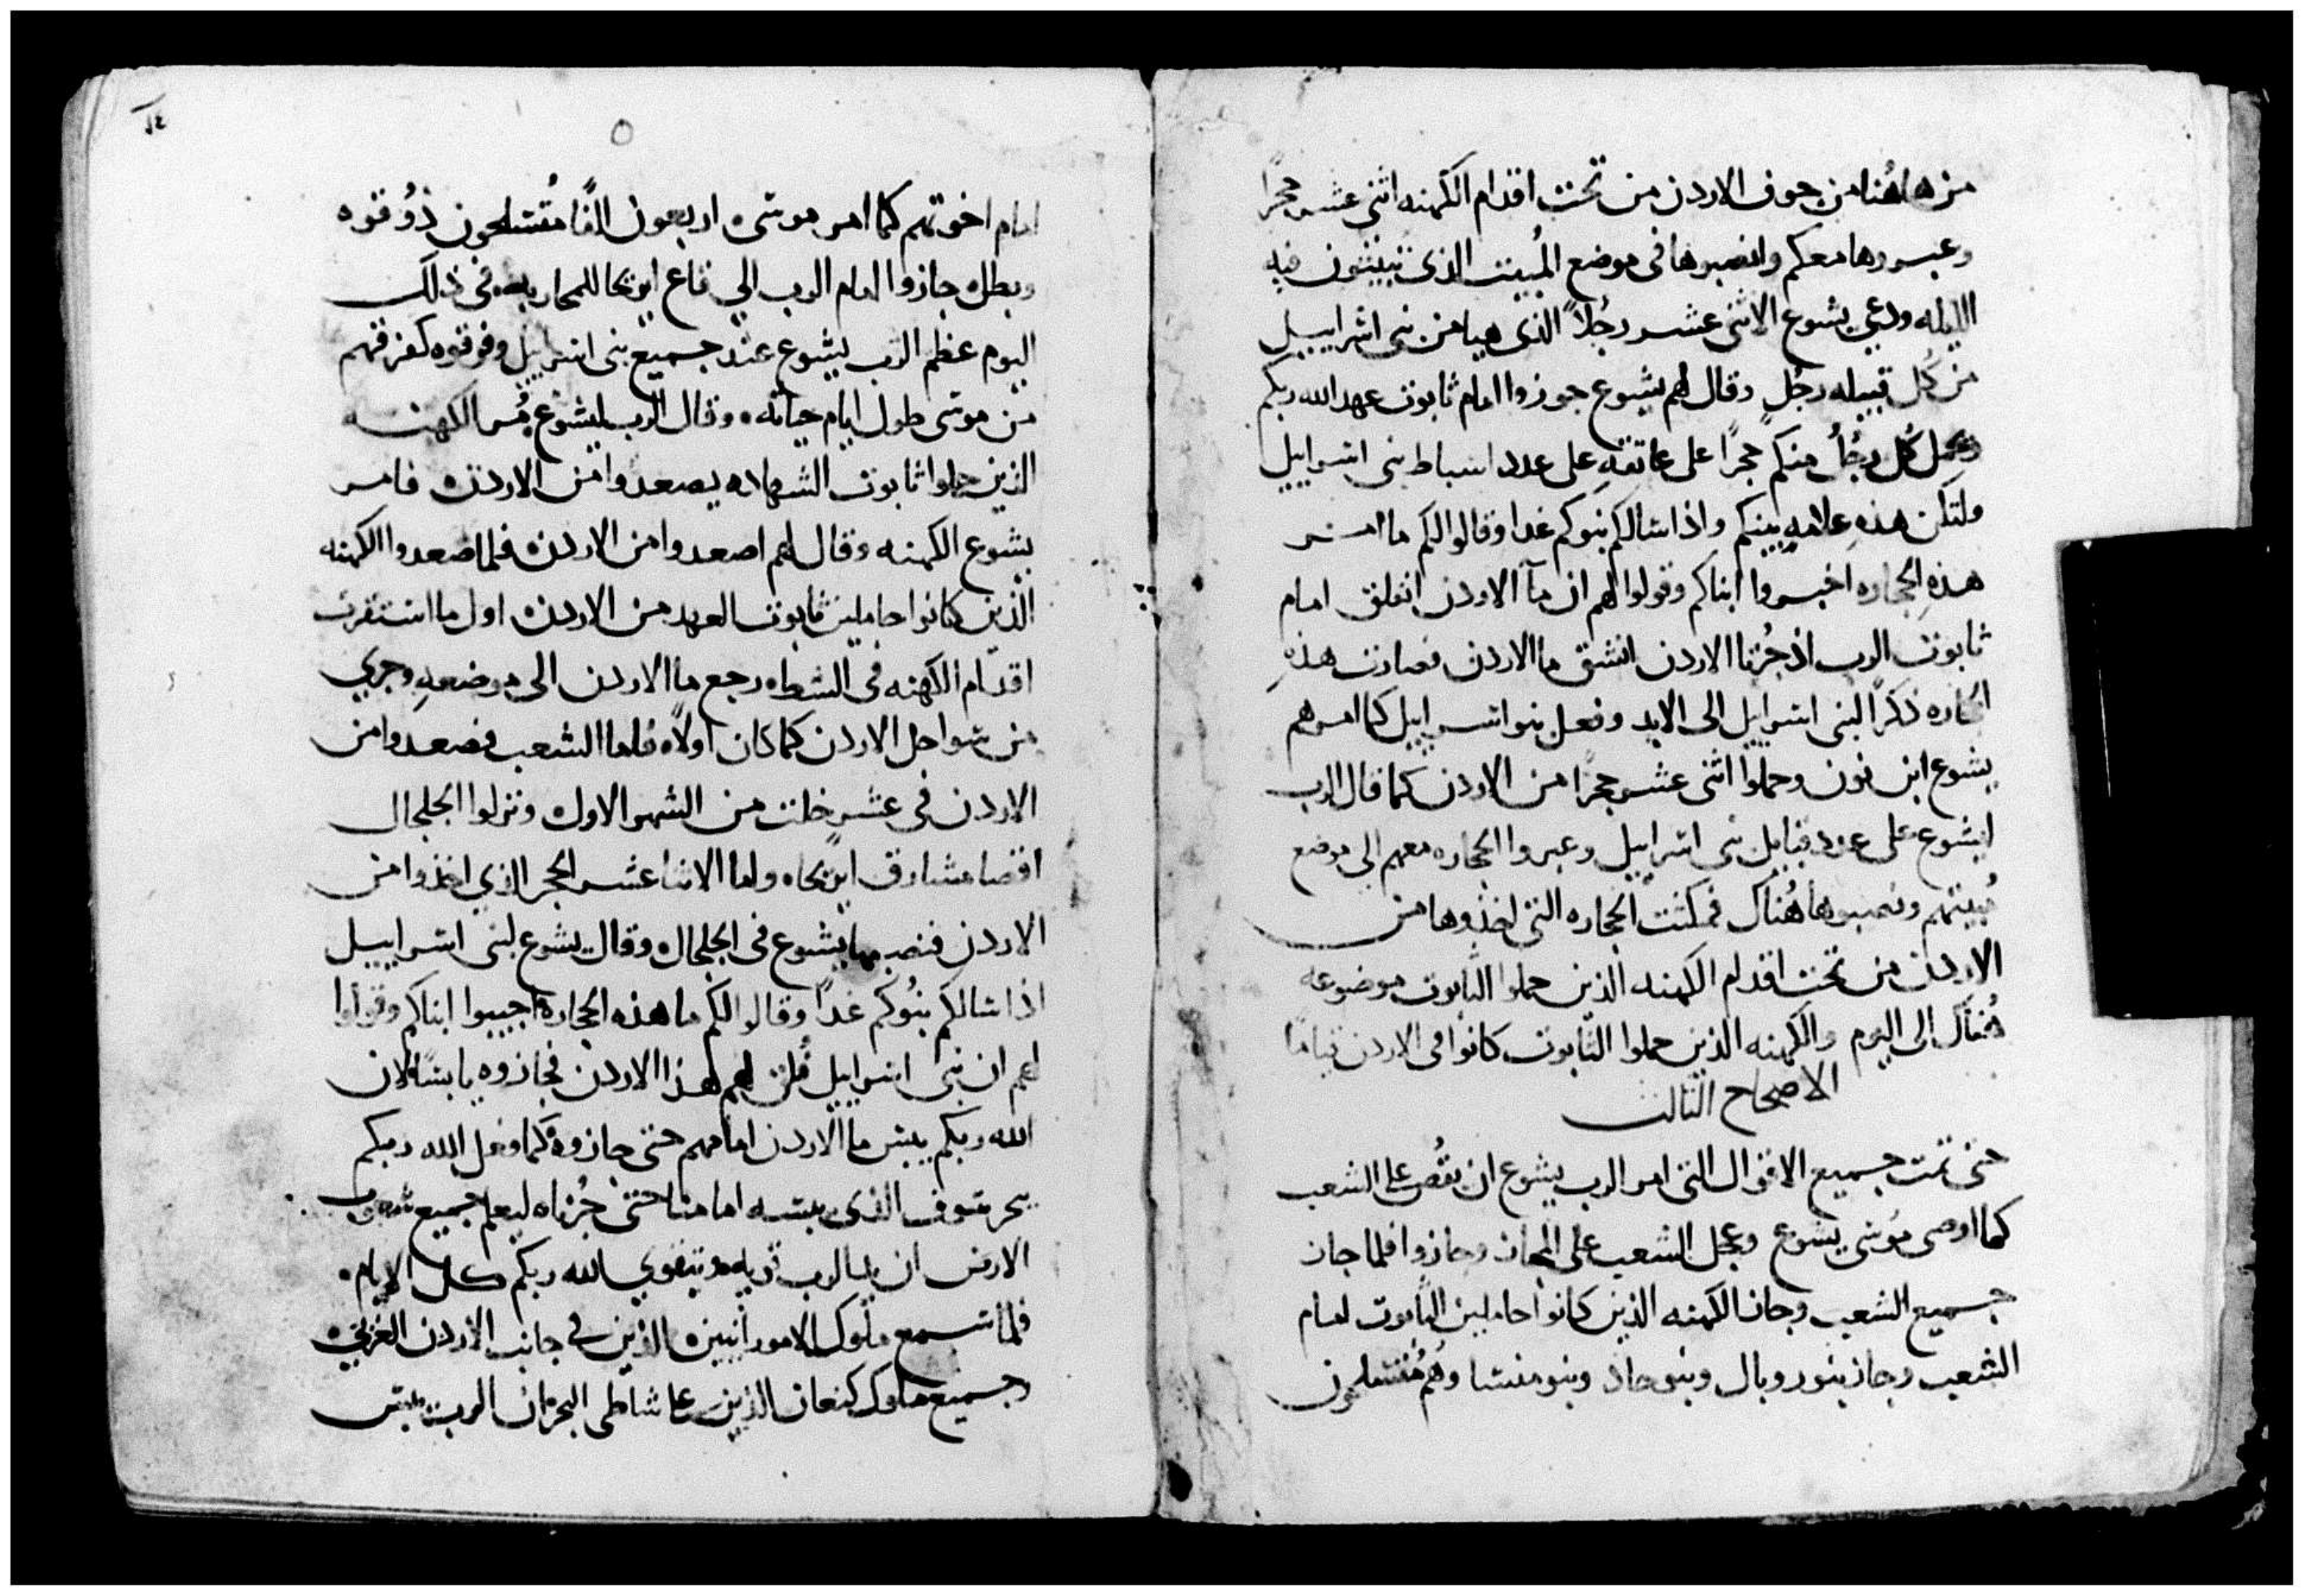 من هاهُنا من جوف الاردن من تحت اقدام الكهنه اثنى عشر حجرًا
وعبروها معكم وانصبوها فى موضع المُبيت الذى تبيتون فيه
الليله ودعي يشوع الاثنى عشر رجُلاً الذى هيا من بنى اسراييل
من كُل قبيله رجُل وقال لهم يشوع جوزوا امام ثابوت عهد الله ربكم
وتحمل كُل رجُلُ منكم حجرًا على عاتقهِ على عدد اسباط بنى اسراييل
ولتكن هذهِ علامهِ بينكم واذا سالكم بنوكم غدا وقالوا لكم ما امر
هذهِ الحجاره اخبروا ابناكم وقولوا لهم ان مآ الاردن انفلق امام
ثابوت الرب اذ جُزنا الاردن انشق ما الاردن فصارت هذهِ
الحجاره ذكرًا لبنى اسراييل الى الابد وفعل بنوا اسراييل كما امرهم
يشوع ابن نون وحملوا اثنى عشر حجرًا من الاردن كما قال الرب
ليشوع على عدد قبايل بنى اسراييل وعبروا الحجاره معهم الى موضع
مُبيتهم ونصبوها هُناك فمكثت الحجاره التى اخذوها من
الاردن من تحت اقدام الكهنه الذين حملوا الثابوت موضوعه
هُناك الى اليوم والكهنه الذين حملوا الثابوت كانوا فى الاردن قيامًا
الاصحاح الثالث
حتى تمت جميع الاقوال التى امر الرب يشوع ان يقُص على الشعب
كما اوصى مُوسى يشوع وعجل الشعب على المجاز وجازوا فلما جاز
جميع الشعب وجاز الكهنه الذين كانوا حاملين الثابوت امام
الشعب وجاز بنو روبال وبنو جاد وبنو منسا وهُم مُتسلحون
١٤
امام اخوتهم كما امر موسى اربعون الفًا مُتسلحون ذوُ قوه
وبطل جازوا امام الرب الي قاع ايريحا للمحاربه فى ذلك
اليوم عظم الرب يشوع عند جميع بنى اسراييل وفرقوه كفرقهم
من موسى طول ايام حياته وقال الرب ليشوع مُر الكهنه
الذين حملوا ثابوت الشهاده يصعدوا من الاردن فامر
يشوع الكهنه وقال لهم اصعدوا من الاردن فلما صعدوا الكهنه
الذين كانوا حاملين ثابوت العهد من الاردن اول ما استقرت
اقدام الكهنه فى الشط رجع ما الاردن الى موضعهِ وجري
من سواحل الاردن كما كان اولاً فاما الشعب فصعدوا من
الاردن فى عشرٍ خلت من الشهر الاول ونزلوا الجلجال
اقصا مشارق ايريحا واما الاثنا عشر الحجر الذي اخذوا من
الاردن فنصبها يشوع فى الجلجال وقال يشوع لبنى اسراييل
اذا سالكم بنُوكم غدًا وقالوا لكم ما هذه الحجاره اجيبوا ابناكم وقولوا
لهم ان بنى اسراييل فلق لهم هذا الاردن فجازوه يابسًا لان
الله ربكم يبس ما الاردن امامهم حتى جازوهُ كما فعل الله ربكم
ببحر سوف الذى يبسه امامنا حتى جُزناه ليعلم جميع شعوب
الارض ان يد الرب قويه وتتقوي الله ربكم كل الايام
فلما سمع ملوك الامورانيين الذين فى جانب الاردن الغربى
وجميع ملوك كنعان الذين على شاطى البحر ان الرب يبس